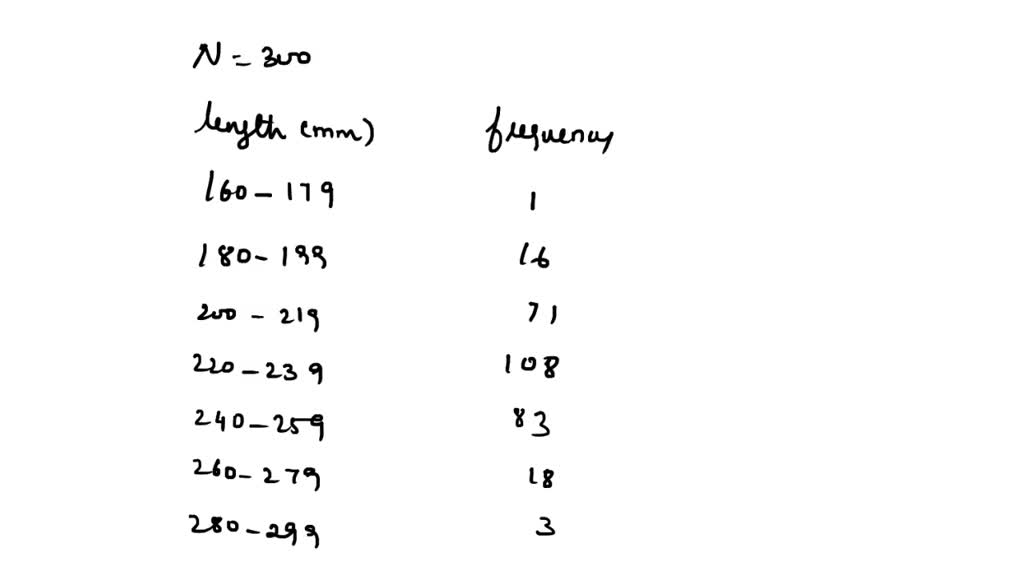 N = 300
length (mm) frequency
160 - 179 1
180 - 199 16
200 - 219 71
220 - 239 108
240 - 259 83
260 - 279 18
280 - 299 3